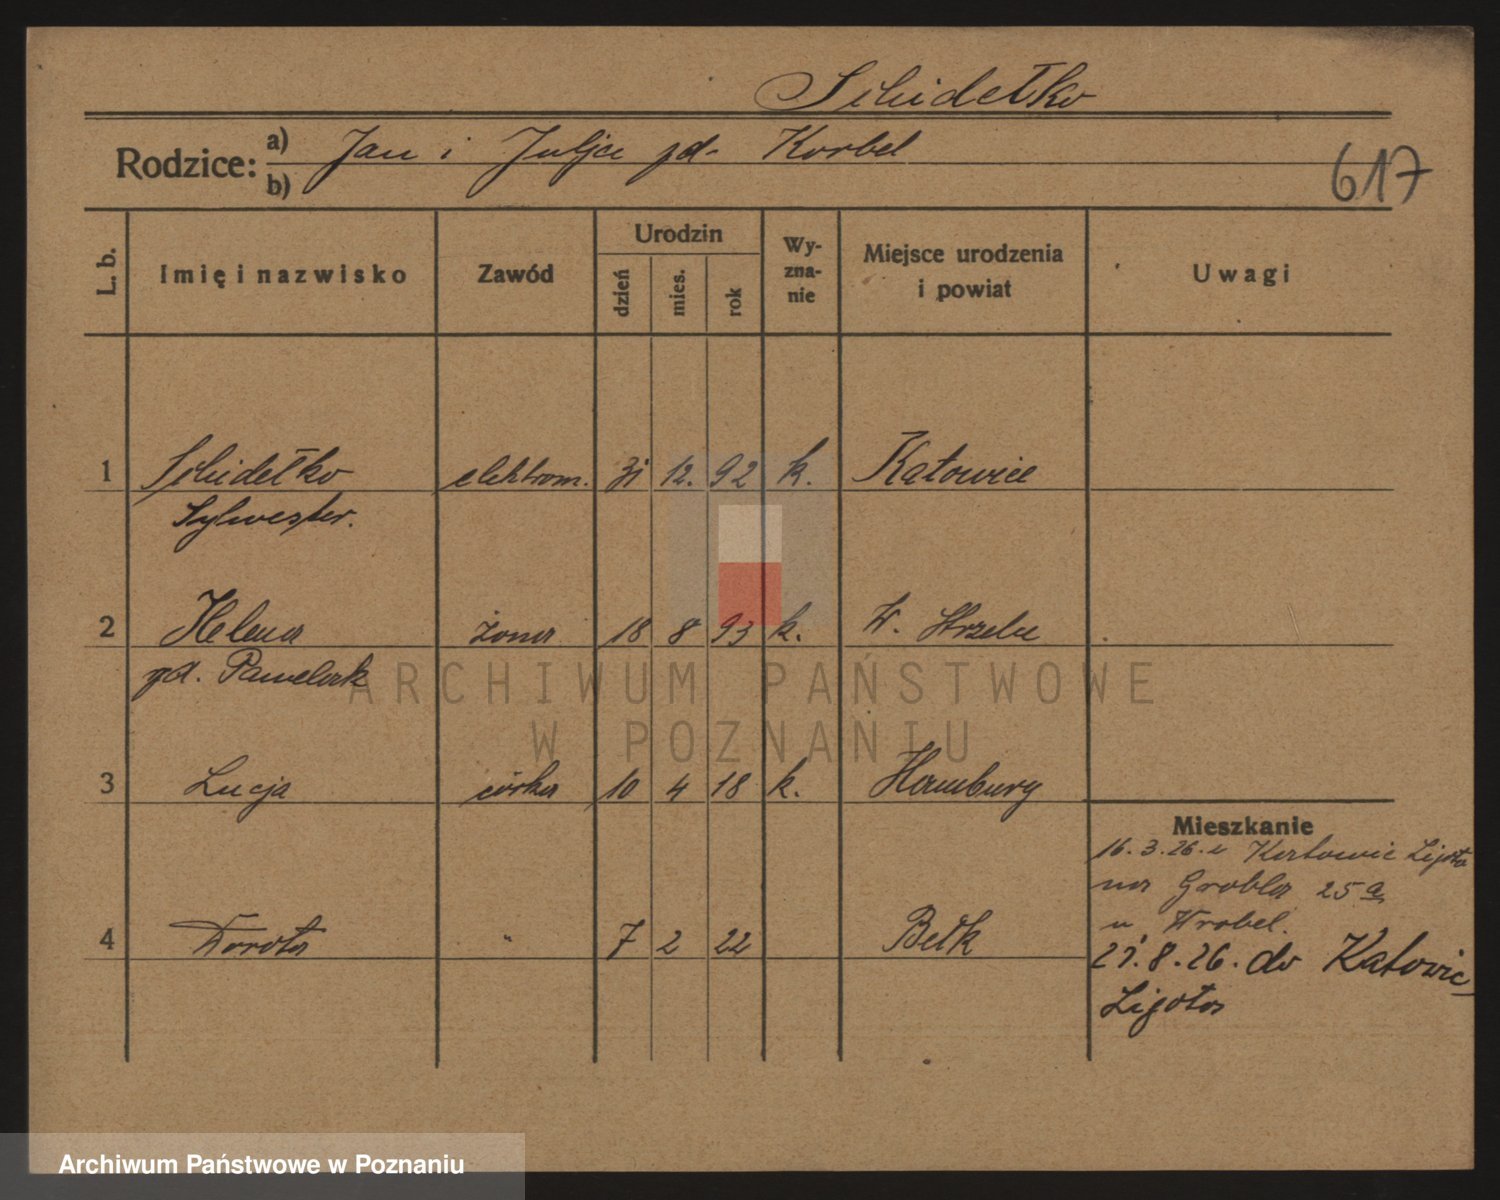 Schidełko
Rodzice: a) Jan i Julja zd. Korbel
b)
617
L. b. Imię i nazwisko Zawód Urodzin dzień mies. rok Wyznanie Miejsce urodzenia i powiat Uwagi
1 Schidełko elektrom. 31 12. 92 k. Katowice
Sylwester.
2 Helena żona 18 8 93 k. W. Strzelce
zd. Pawelczk
3 Lucja córka 10 4 18 k. Hamburg
Mieszkanie
16.3.26. z Katowic Ligota
na Grobla 25 a
u Wrobel.
4 Dorota " 7 2 22 Bełk
27.8.26. do Katowic
Ligota
ARCHIWUM PAŃSTWOWE
W POZNANIU
Archiwum Państwowe w Poznaniu